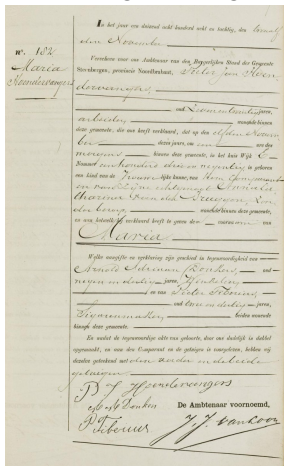 N°. 182
Maria
Hoendervangers
In het jaar een duizend acht honderd acht en tachtig, den twaalf
den November
Verscheen voor ons Ambtenaar van den Burgerlijken Stand der Gemeente
Steenbergen, provincie Noordbrabant, Pieter Jan Hoen
dervangers,
oud
jaren,
arbeider, woonachtig binnen
deze gemeente, die ons heeft verklaard, dat op den elfden Novem
ber dezes jaars, om een ure des
morgens binnen deze gemeente, in het huis Wijk
Nummer een honderd drie en negentig is geboren
een kind van de Vrouwelijke kunne, van Hem Comparant
en van zijne echtgenoote Cornelia
Catharina van der
der beroep, woonachtig binnen deze gemeente,
en aan hetwelk hij verklaard heeft te geven den voornaam van
Maria
Welke aangifte en verklaring zijn geschied in tegenwoordigheid van
Arnold Adriaan Donken, oud
negen en dertig jaren,
en van Pieter Tiberius,
oud twee en dertig jaren,
Sigarenmaker, beiden woonende
binnen deze gemeente.
En nadat de tegenwoordige akte van geboorte, door ons dadelijk in dubbel
opgemaakt, en aan den Comparant en de getuigen is voorgelezen, hebben wij
dezelve geteekend met den vader en de beide
getuigen
P J Hoendervangers
A A Donken
P Tiberius
De Ambtenaar voornoemd,
J. J. van Loon